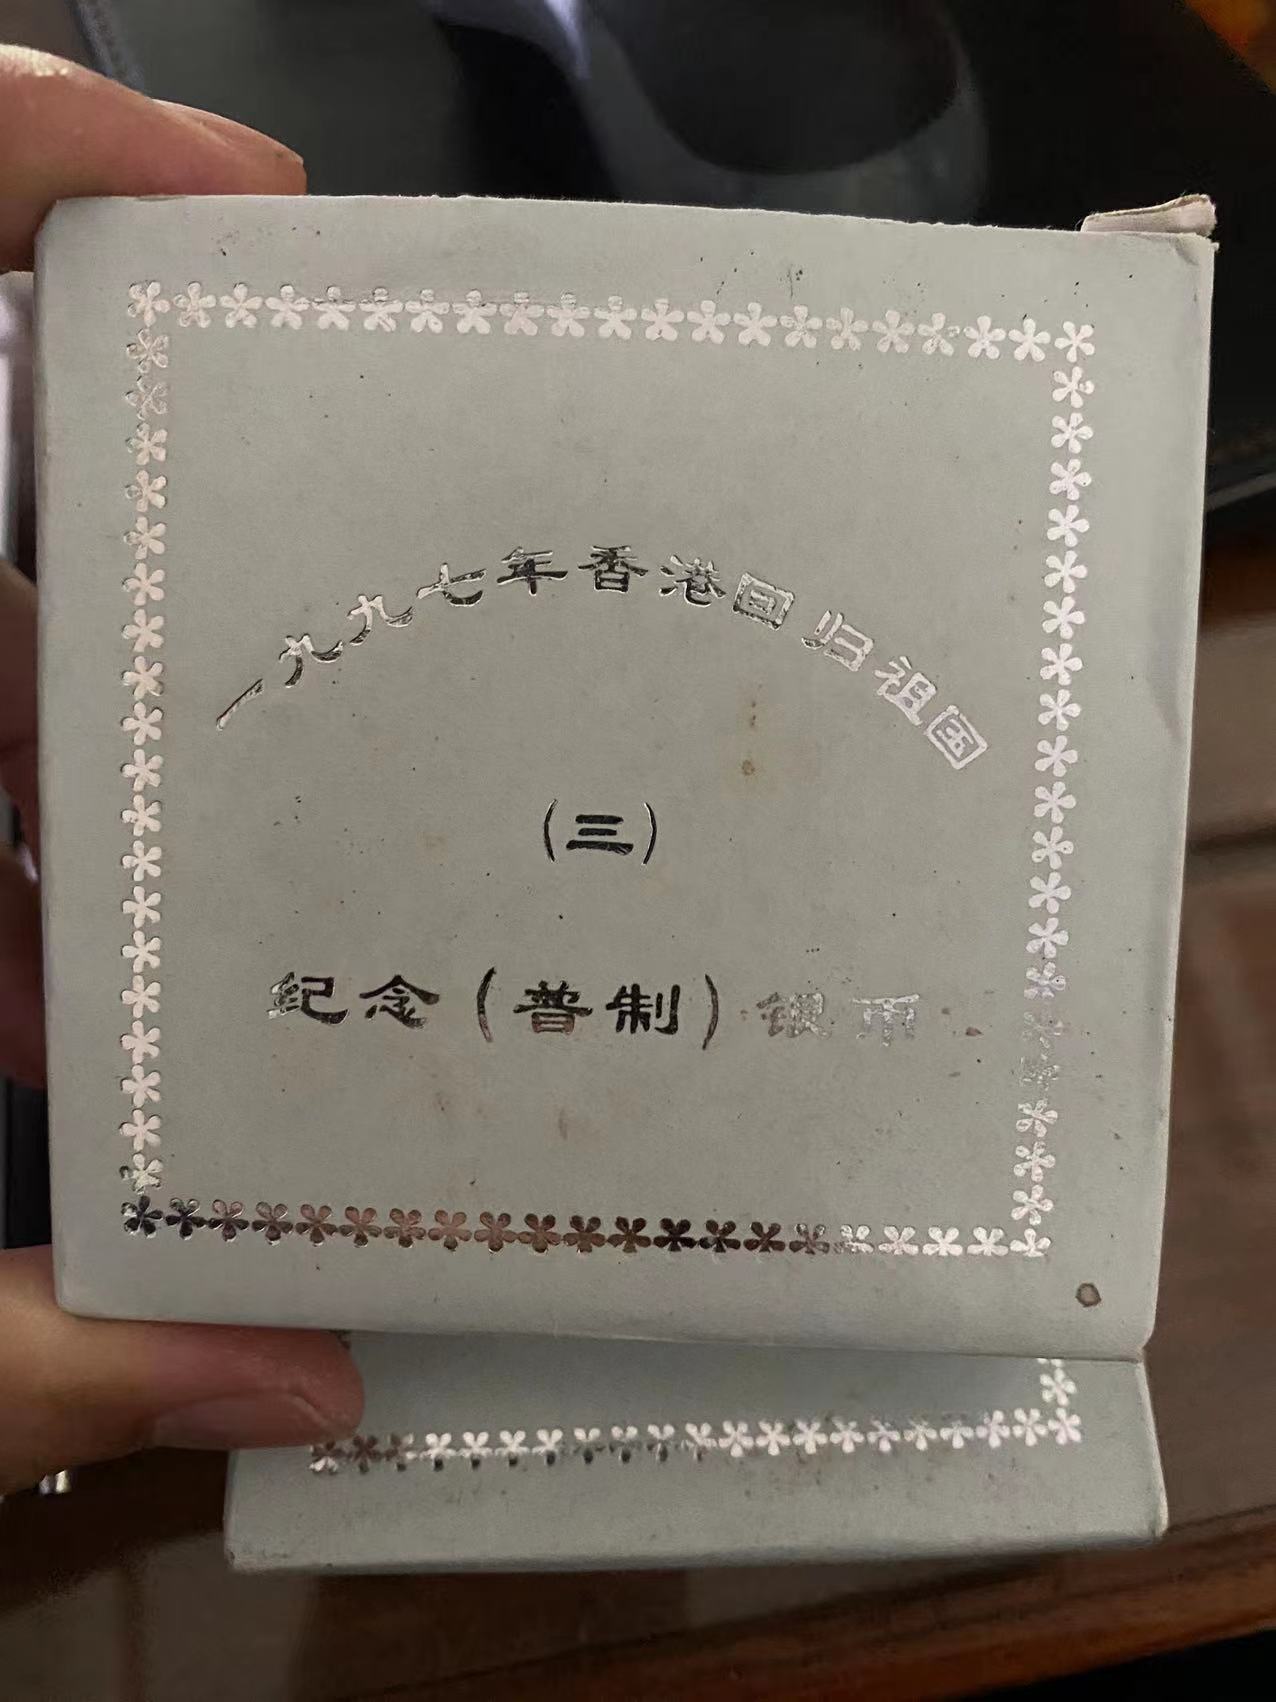 一九九七年香港回归祖国
(三)
纪念(普制)银币